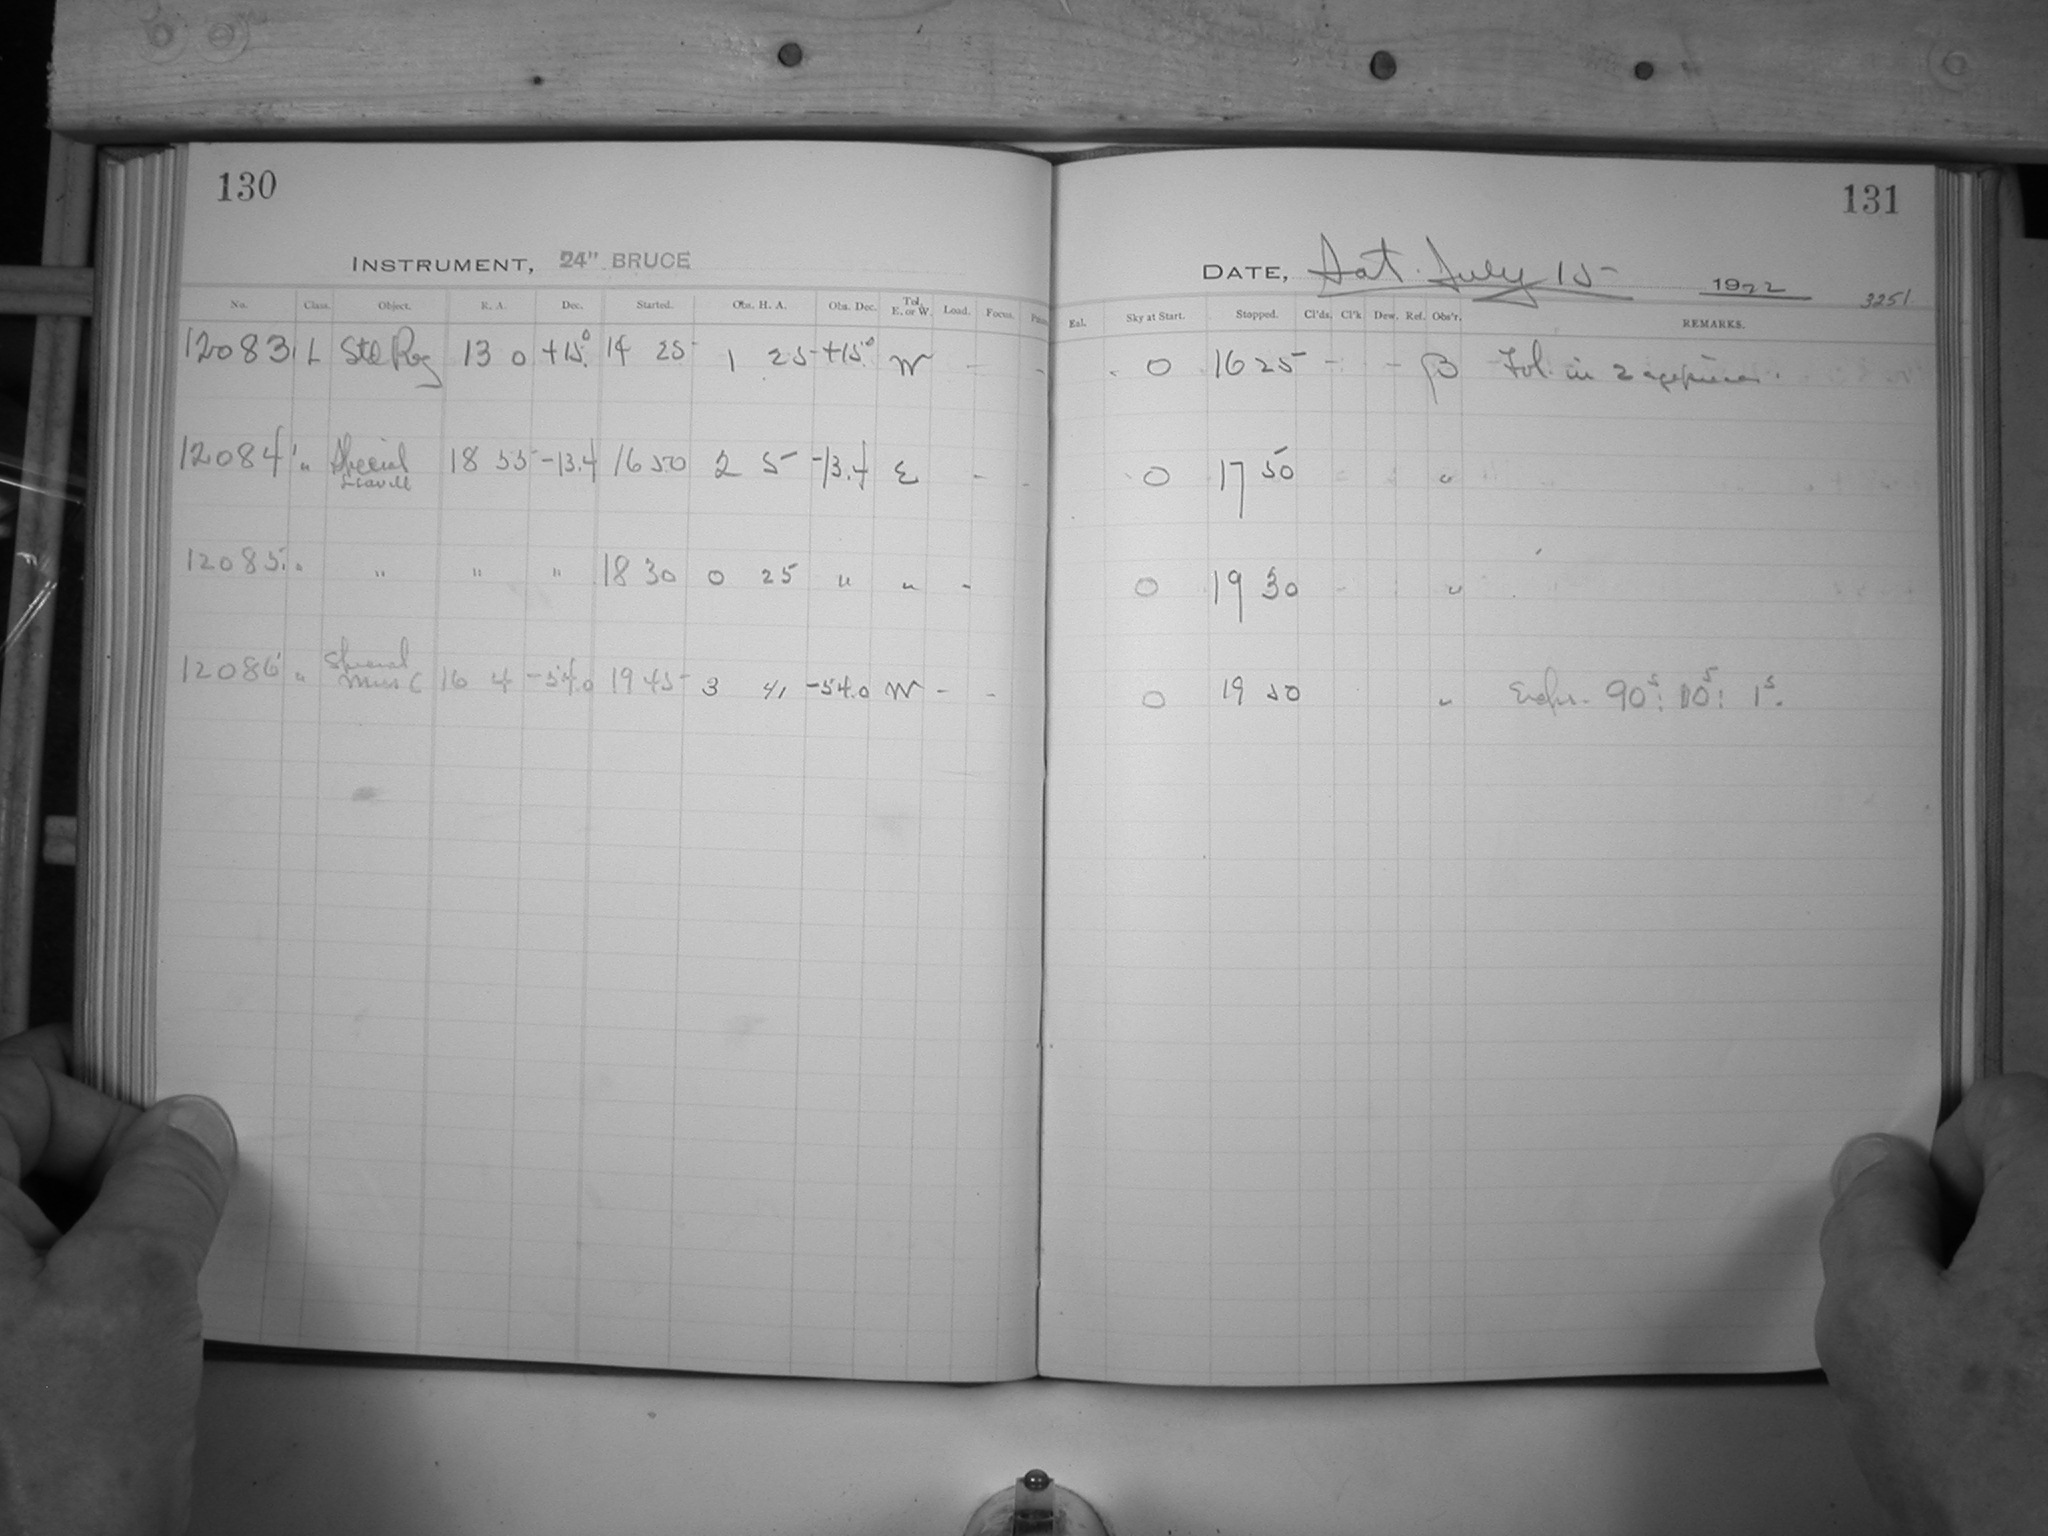 130
INSTRUMENT, 24" BRUCE
No. Class. Object. R. A. Dec. Started. Obs. H. A. Obs. Dec. Tel. E. or W. Load. Focus.
12083 L Std Reg 13 0 +15° 14 25 1 25 +15° W - -
12084 " Special 18 55 -13.4 16 50 2 5 -13.4 E - -
12085 " " " " 18 30 0 25 " " -
12086 " Special Miss C 16 4 -54.0 19 45 3 41 -54.0 W - -
131
DATE, Sat. July 15 1922
3251
Eal. Sky at Start. Stopped. Cl'ds. Cl'k Dew. Ref. Obs'r. REMARKS.
0 16 25 - - β Fol. in 2
0 17 50 "
0 19 30 - "
0 19 50 " 90s: 10s: 1s.